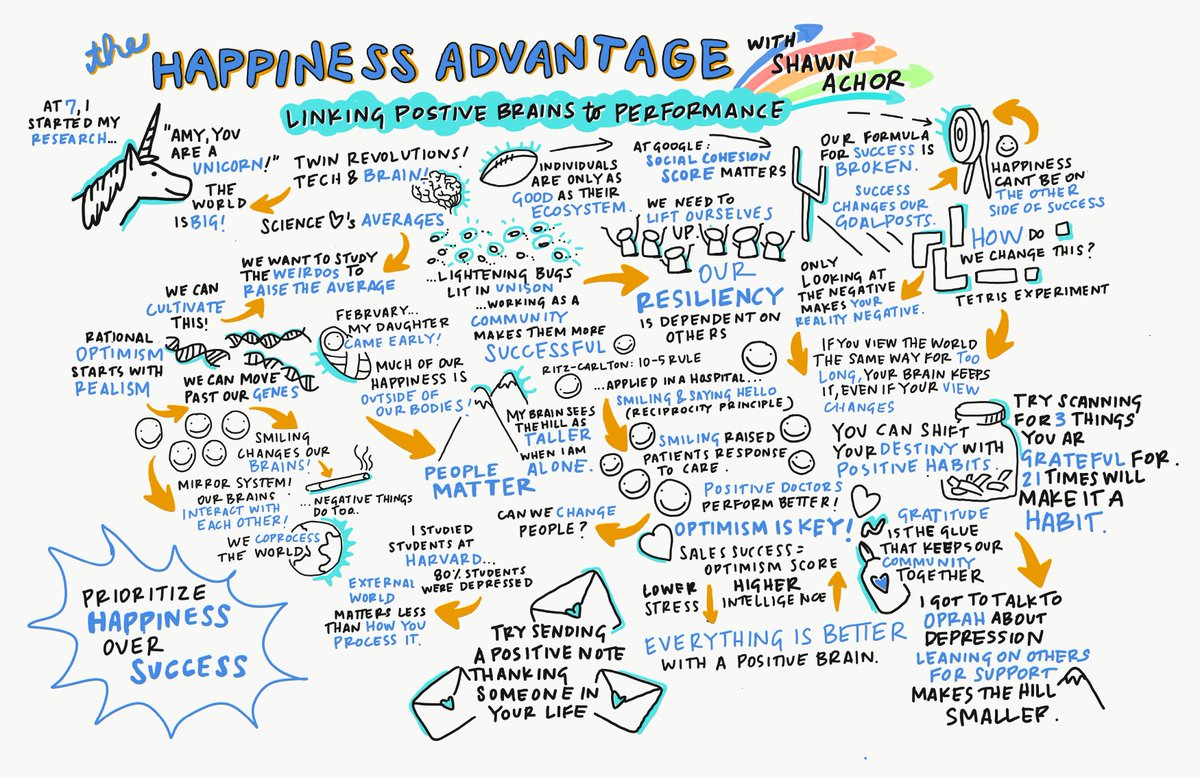 the HAPPINESS ADVANTAGE
WITH
SHAWN
ACHOR
LINKING POSTIVE BRAINS to PERFORMANCE
AT 7, I
STARTED MY
RESEARCH...
"AMY, YOU
ARE A
UNICORN!"
THE
WORLD
IS BIG!
TWIN REVOLUTIONS!
TECH & BRAIN!
SCIENCE ♡'s AVERAGES
WE WANT TO STUDY
THE WEIRDOS TO
RAISE THE AVERAGE
WE CAN
CULTIVATE
THIS!
RATIONAL
OPTIMISM
STARTS WITH
REALISM
WE CAN MOVE
PAST OUR GENES
SMILING
CHANGES OUR
BRAINS!
MIRROR SYSTEM!
OUR BRAINS
INTERACT WITH
EACH OTHER!
...NEGATIVE THINGS
DO TOO.
WE COPROCESS
THE WORLD!
PRIORITIZE
HAPPINESS
OVER
SUCCESS
INDIVIDUALS
ARE ONLY AS
GOOD AS THEIR
ECOSYSTEM.
AT GOOGLE:
SOCIAL COHESION
SCORE MATTERS
...LIGHTENING BUGS
LIT IN UNISON
...WORKING AS A
COMMUNITY
MAKES THEM MORE
SUCCESSFUL
WE NEED TO
LIFT OURSELVES
UP.
OUR
RESILIENCY
IS DEPENDENT ON
OTHERS
FEBRUARY...
MY DAUGHTER
CAME EARLY!
MUCH OF OUR
HAPPINESS IS
OUTSIDE OF
OUR BODIES!
PEOPLE
MATTER
MY BRAIN SEES
THE HILL AS
TALLER
WHEN I AM
ALONE.
RITZ-CARLTON: 10-5 RULE
...APPLIED IN A HOSPITAL...
SMILING & SAYING HELLO
(RECIPROCITY PRINCIPLE)
SMILING RAISED
PATIENTS RESPONSE
TO CARE.
POSITIVE DOCTORS
PERFORM BETTER!
OPTIMISM IS KEY!
CAN WE CHANGE
PEOPLE?
I STUDIED
STUDENTS AT
HARVARD...
80% STUDENTS
WERE DEPRESSED
EXTERNAL
WORLD
MATTERS LESS
THAN HOW YOU
PROCESS IT.
TRY SENDING
A POSITIVE NOTE
THANKING
SOMEONE IN
YOUR LIFE
SALES SUCCESS =
OPTIMISM SCORE
LOWER
STRESS
HIGHER
INTELLIGENCE
EVERYTHING IS BETTER
WITH A POSITIVE BRAIN.
OUR FORMULA
FOR SUCCESS IS
BROKEN.
SUCCESS
CHANGES OUR
GOALPOSTS.
HAPPINESS
CANT BE ON
THE OTHER
SIDE OF SUCCESS
HOW DO
WE CHANGE THIS?
TETRIS EXPERIMENT
ONLY
LOOKING AT
THE NEGATIVE
MAKES YOUR
REALITY NEGATIVE.
IF YOU VIEW THE WORLD
THE SAME WAY FOR TOO
LONG, YOUR BRAIN KEEPS
IT, EVEN IF YOUR VIEW
CHANGES
YOU CAN SHIFT
YOUR DESTINY WITH
POSITIVE HABITS.
TRY SCANNING
FOR 3 THINGS
YOU AR
GRATEFUL FOR.
21 TIMES WILL
MAKE IT A
HABIT.
GRATITUDE
IS THE GLUE
THAT KEEPS OUR
COMMUNITY
TOGETHER
I GOT TO TALK TO
OPRAH ABOUT
DEPRESSION
LEANING ON OTHERS
FOR SUPPORT
MAKES THE HILL
SMALLER.